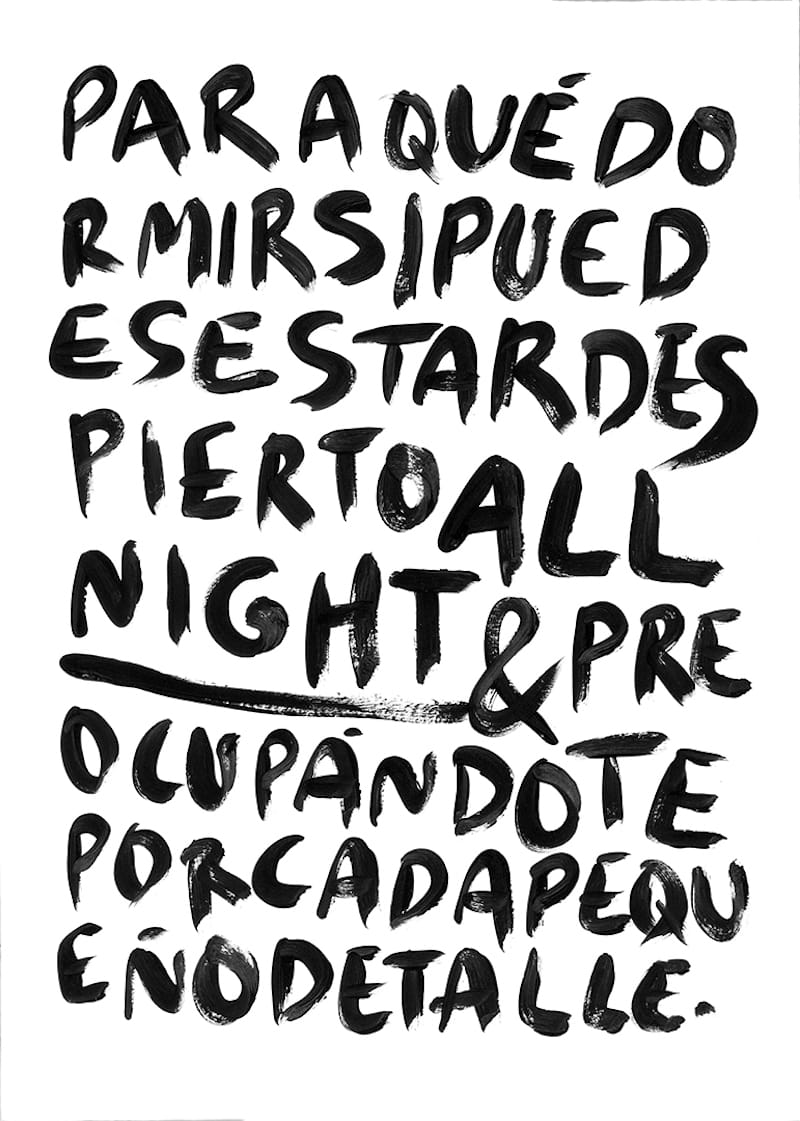 PARA QUÉ DO
RMIR SI PUED
ES ESTAR DES
PIERTO ALL
NIGHT & PRE
OCUPÁNDOTE
POR CADA PEQU
EÑO DETALLE.